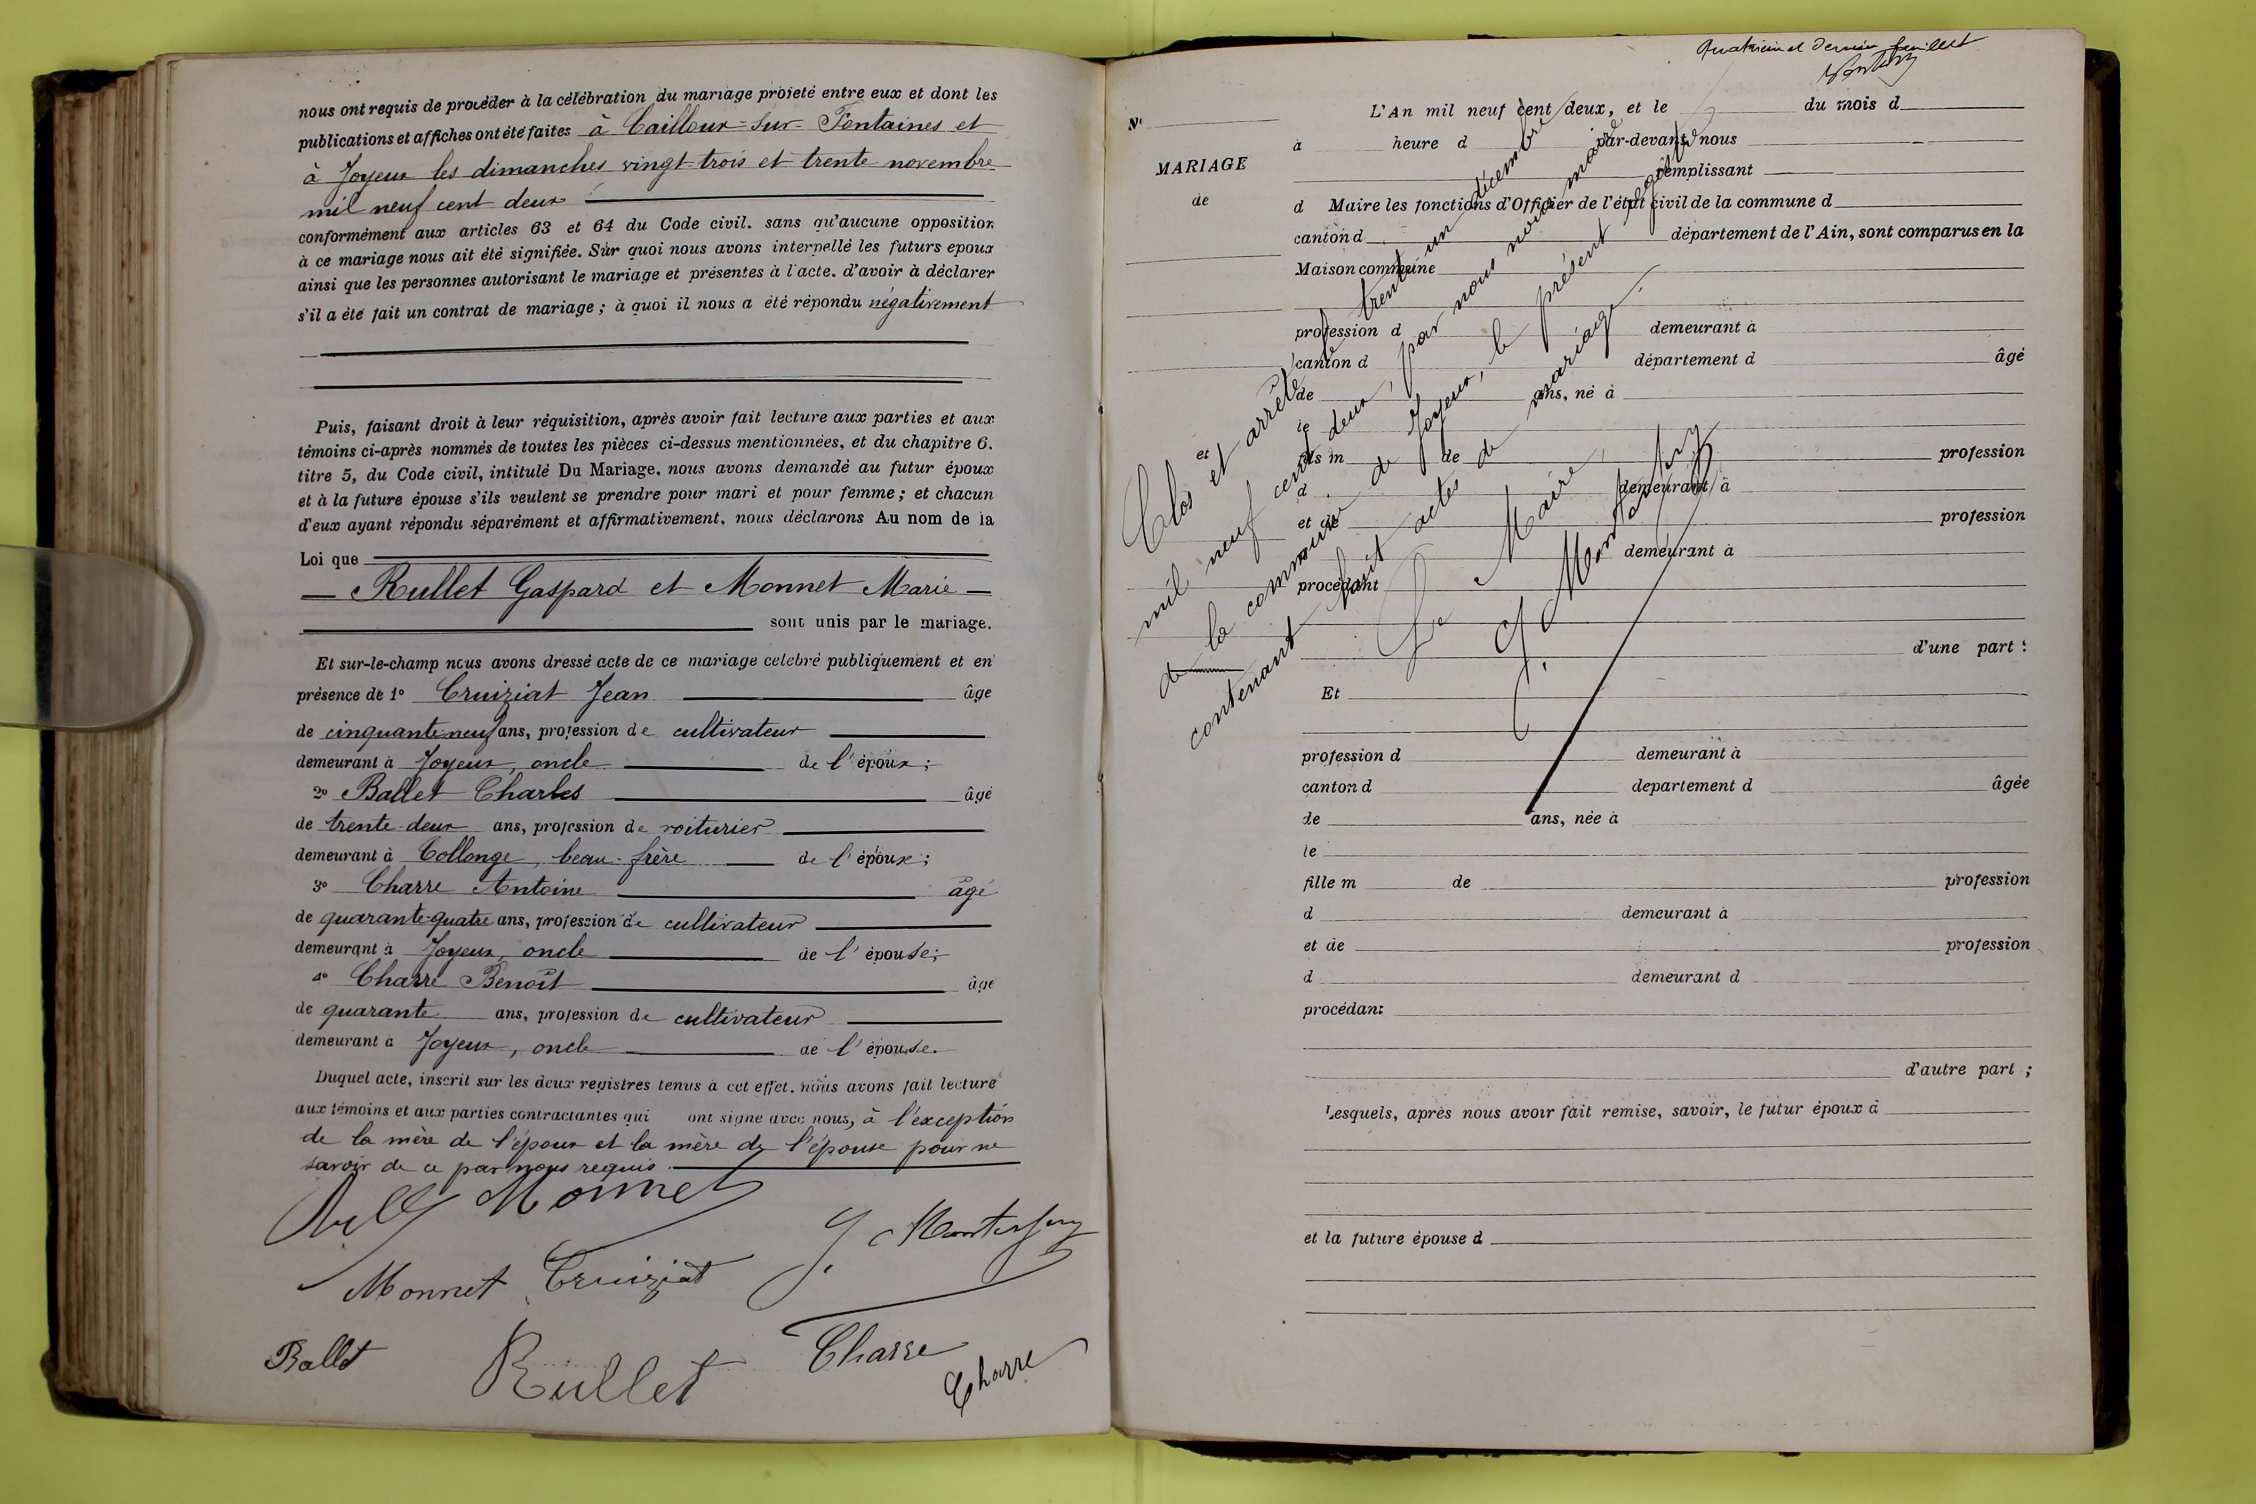 nous ont requis de procéder à la célébration du mariage projeté entre eux et dont les
publications et affiches ont été faites à Cailloux-sur-Fontaines et
à Joyeux les dimanches vingt-trois et trente novembre
mil neuf cent deux
conformément aux articles 63 et 64 du Code civil, sans qu'aucune opposition
à ce mariage nous ait été signifiée. Sur quoi nous avons interpellé les futurs epoux
ainsi que les personnes autorisant le mariage et présentes à l'acte, d'avoir à déclarer
s'il a été fait un contrat de mariage ; à quoi il nous a été répondu négativement
Puis, faisant droit à leur réquisition, après avoir fait lecture aux parties et aux
témoins ci-après nommés de toutes les pièces ci-dessus mentionnées, et du chapitre 6.
titre 5, du Code civil, intitulé Du Mariage, nous avons demandé au futur époux
et à la future épouse s'ils veulent se prendre pour mari et pour femme ; et chacun
d'eux ayant répondu séparément et affirmativement, nous déclarons Au nom de la
Loi que
Rullet Gaspard et Monnet Marie
sont unis par le mariage.
Et sur-le-champ nous avons dressé acte de ce mariage celebré publiquement et en
présence de 1° Cruiziat Jean âge
de cinquante-neuf ans, profession de cultivateur
demeurant à Joyeux, oncle de l'époux ;
2° Ballet Charles âgé
de trente-deux ans, profession de voiturier
demeurant à Collonge, beau-frère de l'époux ;
3° Charre Antoine âgé
de quarante-quatre ans, profession de cultivateur
demeurant à Joyeux, oncle de l'épouse ;
4° Charre Benoît âgé
de quarante ans, profession de cultivateur
demeurant à Joyeux, oncle de l'épouse.
Duquel acte, inscrit sur les deux registres tenus à cet effet, nous avons fait lecture
aux témoins et aux parties contractantes qui ont signé avec nous, à l'exception
de la mère de l'époux et la mère de l'épouse pour ne
savoir de ce par nous requis.
Monnet
Monnet Cruiziat J. Monterfery
Ballet Rullet Charre Charre
Quatrième et dernier feuillet
N°
MARIAGE
de
et
L'An mil neuf cent deux, et le du mois d
à heure d par-devant nous
remplissant
d Maire les fonctions d'Officier de l'état civil de la commune d
canton d département de l'Ain, sont comparus en la
Maison commune
profession d demeurant à
canton d département d âgé
de ans, né à
le
fils m de profession
d demeurant à
et de profession
demeurant à
procédant
d'une part ;
Et
profession d demeurant à
canton d departement d âgée
de ans, née à
le
fille m de profession
d demeurant à
et de profession
d demeurant d
procédant
d'autre part ;
Lesquels, après nous avoir fait remise, savoir, le futur époux d
et la future épouse d
Clos et arrêté le trente un décembre
mil neuf cent deux, par nous maire
de la commune de Joyeux, le présent registre
contenant huit actes de mariage.
Le Maire,
J. Monterfery